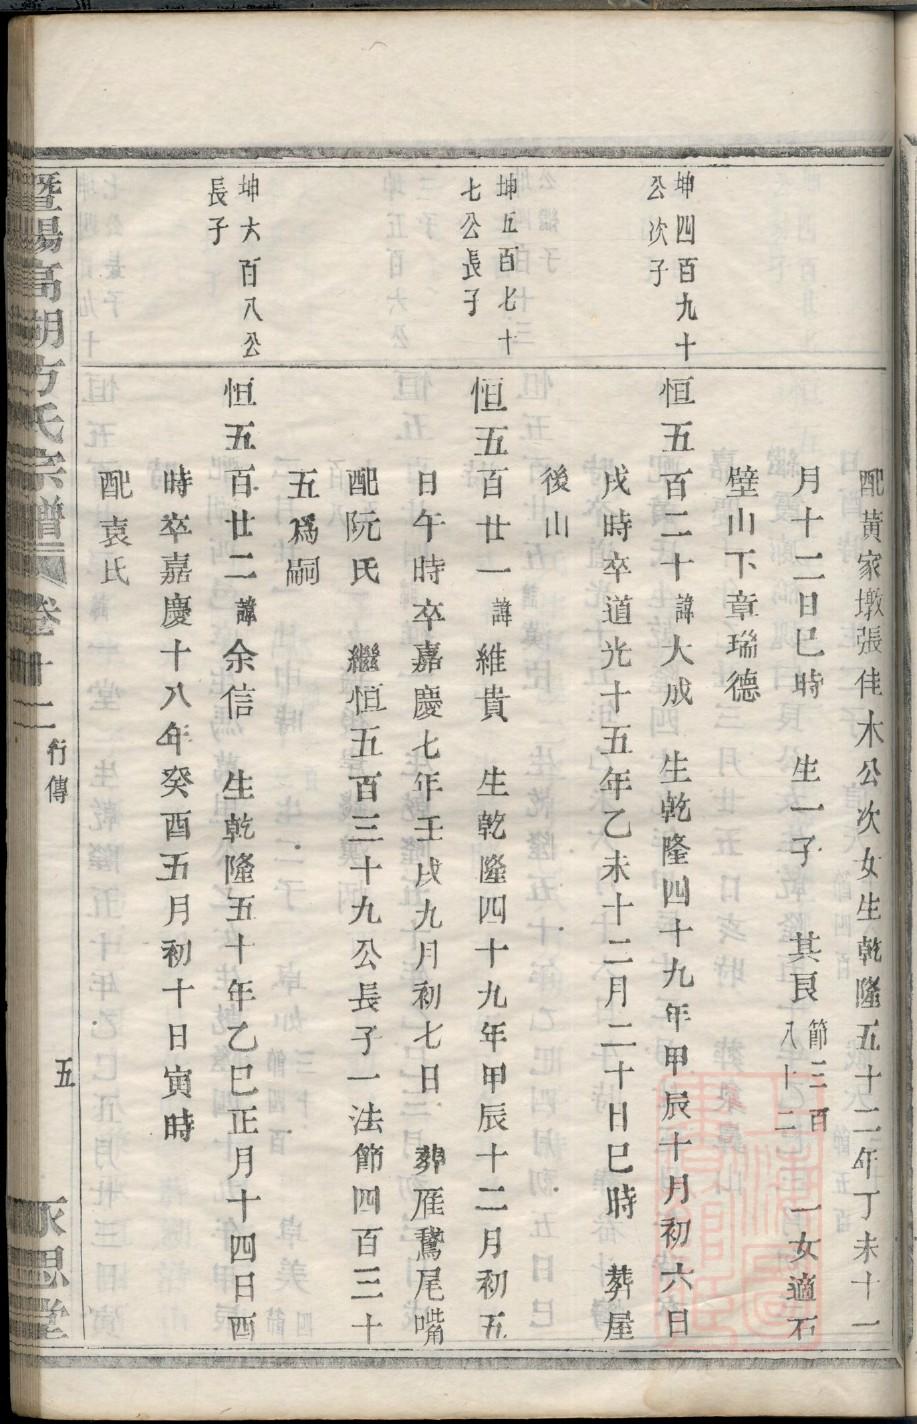 配黃家墩張佳木公次女生乾隆五十二年丁未十一
月十二日巳時 生一子 其艮 節三百八十二 一女適石
壁山下章瑞德
坤四百九十
公次子
恒五百二十 諱 大成 生乾隆四十九年甲辰十月初六日
戌時卒道光十五年乙未十二月二十日巳時 葬屋
後山
坤五百七十
七公長子
恒五百廿一 諱 維貴 生乾隆四十九年甲辰十二月初五
日午時卒嘉慶七年壬戌九月初七日 葬雁鵞尾嘴
配阮氏 繼恒五百三十九公長子一法節四百三十
五爲嗣
坤六百八公
長子
恒五百廿二 諱 余信 生乾隆五十年乙巳正月十四日酉
時卒嘉慶十八年癸酉五月初十日寅時
配袁氏
暨陽高湖方氏宗譜 卷十二 行傳 五 永思堂